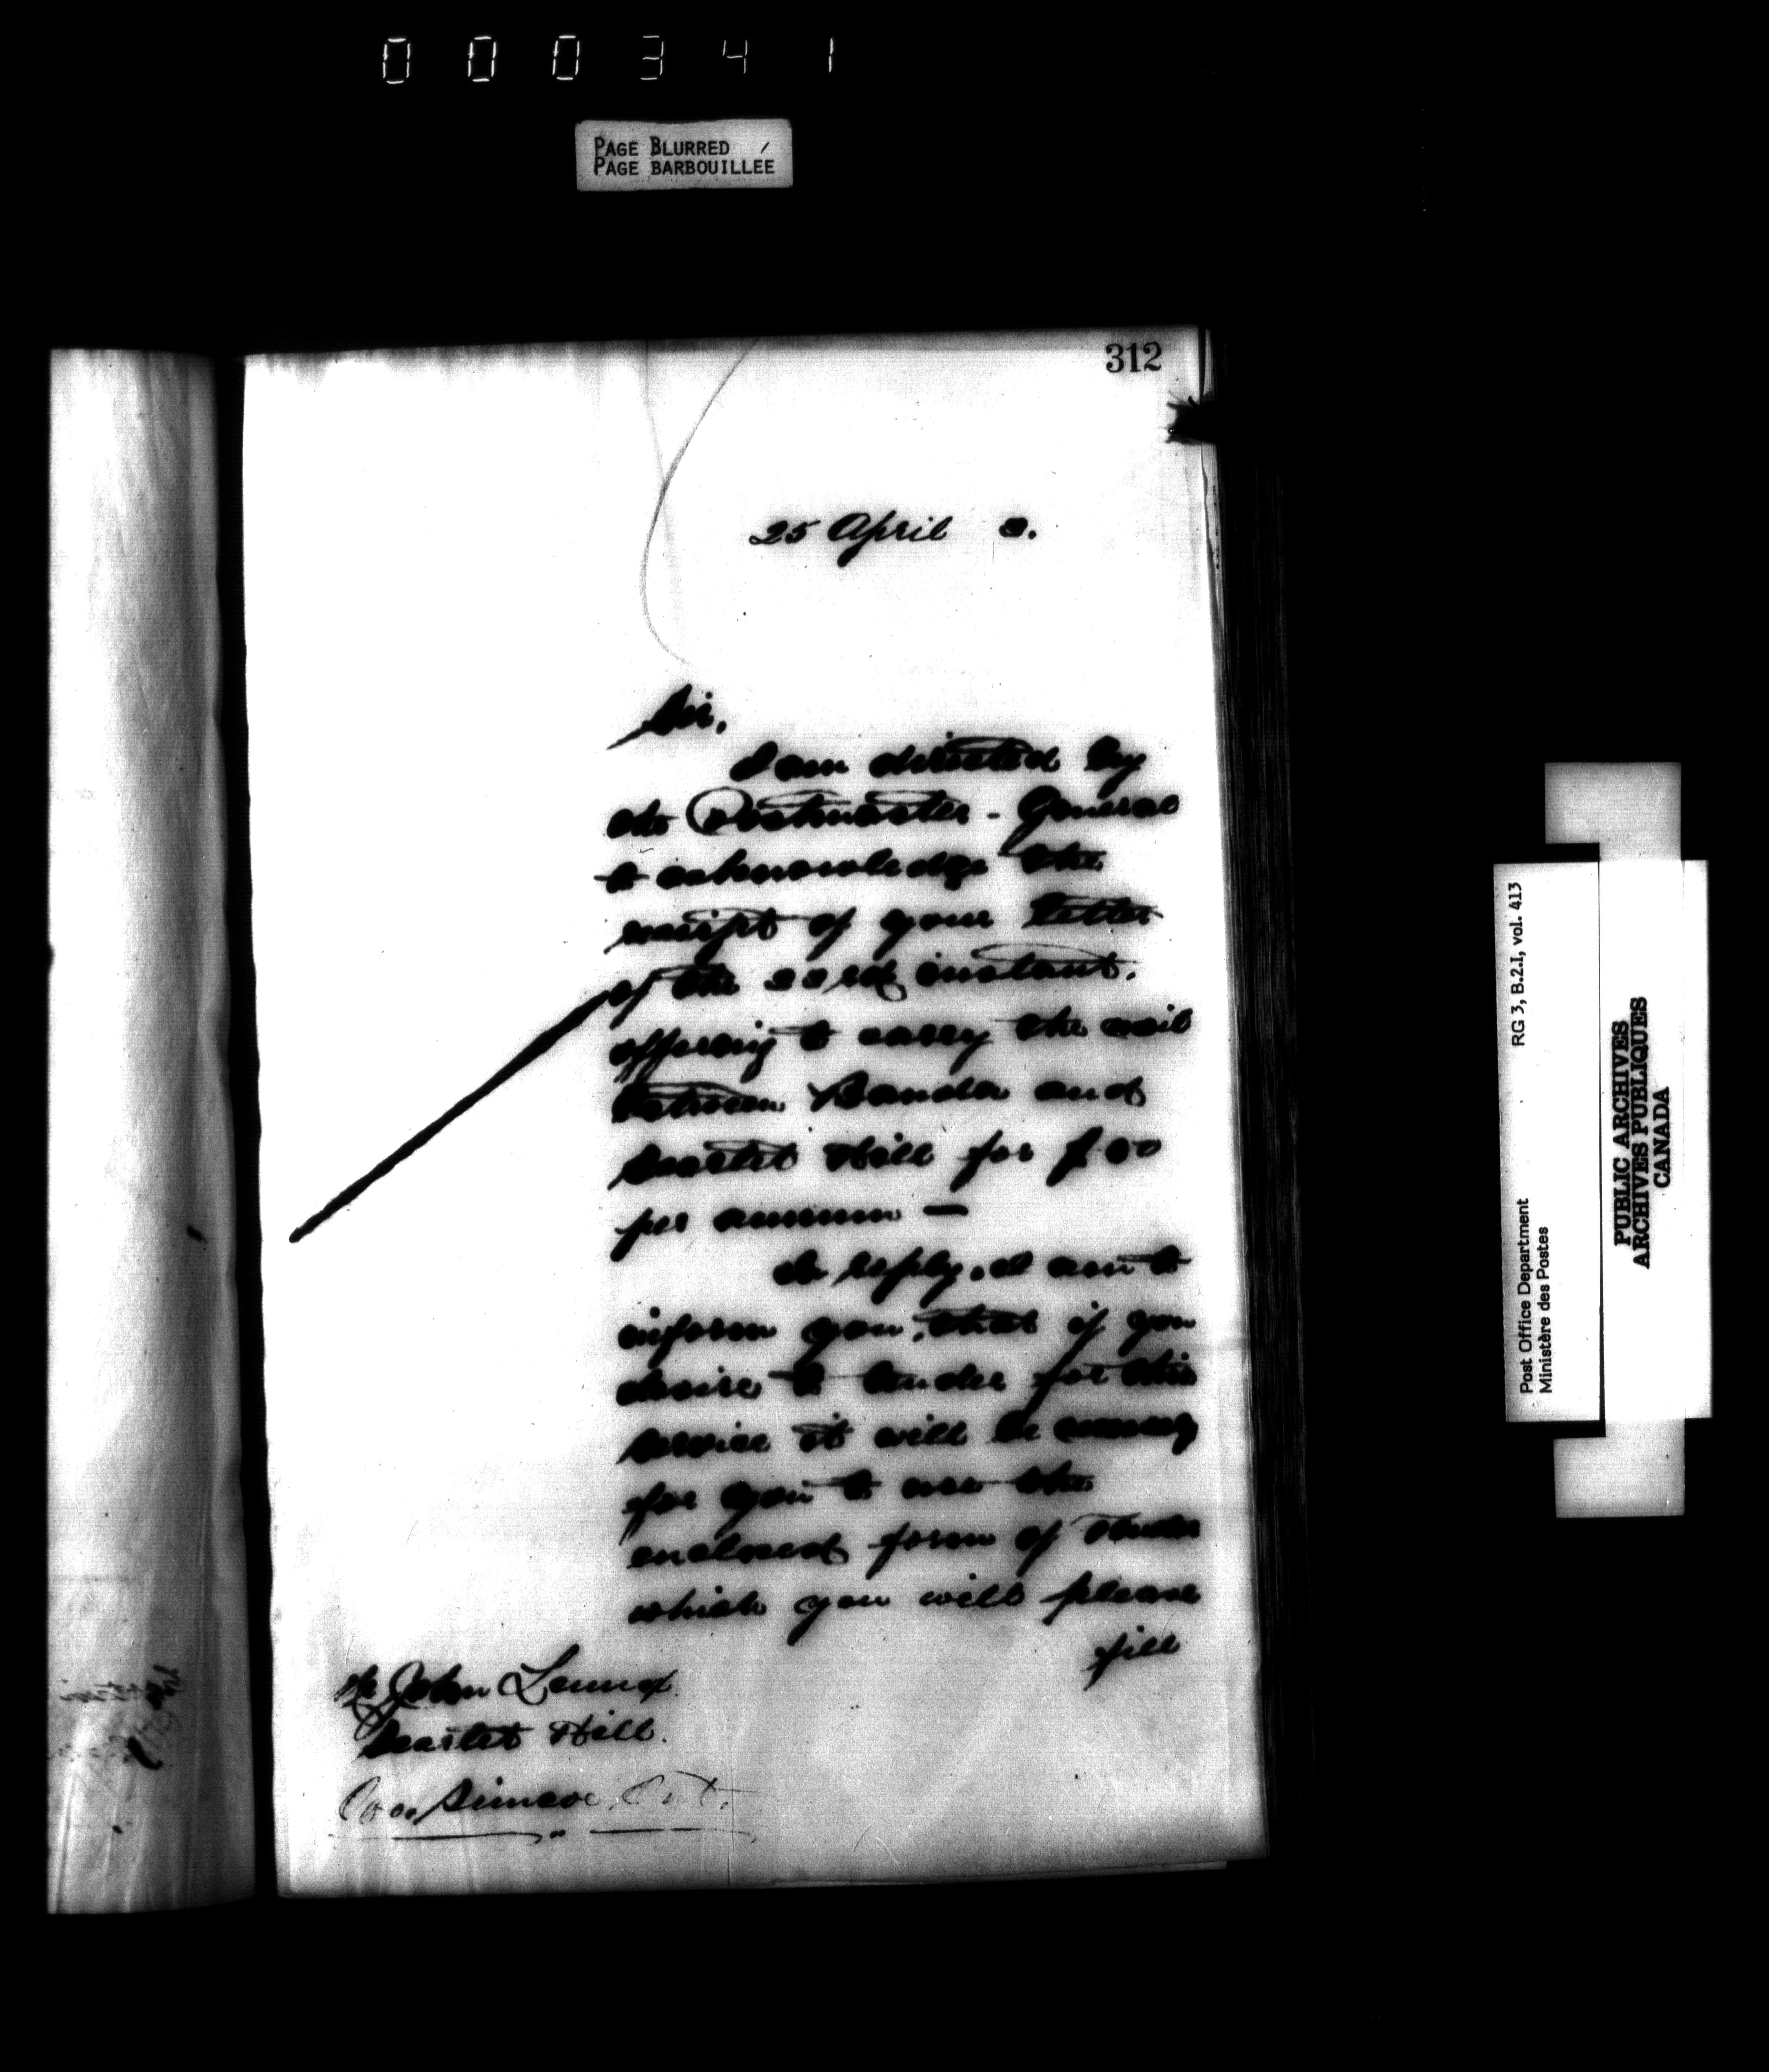 000341
PAGE BLURRED
PAGE BARBOUILLÉE
312
25 April
Sir,
I am directed by
the Postmaster-General
to acknowledge the
receipt of your letter
of the instant,
offering to carry the mail
between Banda and
Scarlet Hill for
per annum —
In reply, I am to
inform you, that if you
desire to tender for this
service it will be necessary
for you to use the
enclosed form of Tender
which you will please
fill
Mr John Lennox
Scarlet Hill.
Co. Simcoe, Ont.
RG 3, B.2.I, vol. 413
Post Office Department
Ministère des Postes
PUBLIC ARCHIVES
ARCHIVES PUBLIQUES
CANADA